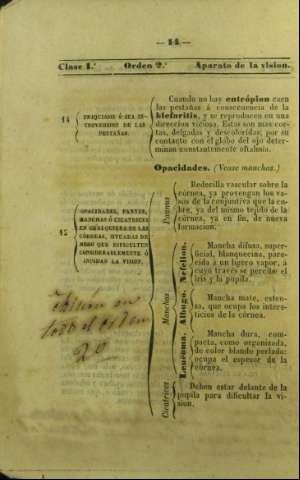 — 14 —
Clase 1.ª Orden 2.º Aparato de la vision.
14
TRIQUIASIS Ó SEA IN-
TROVERSION DE LAS
PESTAÑAS.
Cuando no hay entrópion caen
las pestañas á consecuencia de la
blefaritis, y se reproducen en una
direccion viciosa. Estas son mas cor-
tas, delgadas y descoloridas; por su
contacto con el globo del ojo deter-
minan constantemente oftalmia.
Opacidades. (Vease manchas.)
15
OPACIDADES, PANNUS,
MANCHAS Ó CICATRICES
EN CUALQUIERA DE LAS
CÓRNEAS, SITUADAS DE
MODO QUE DIFICULTEN
CONSIDERABLEMENTE Ó
IMPIDAN LA VISION.
Pannus
Redecilla vascular sobre la
córnea, ya provengan los va-
sos de la conjuntiva que la cu-
bre, ya del mismo tejido de la
córnea, ya en fin, de nueva
formacion.
Manchas
Nefelion.
Mancha difusa, super-
ficial, blanquecina, pare-
cida á un ligero vapor, á
cuyo través se percibe el
iris y la pupila.
Albugo.
Mancha mate, exten-
sa, que ocupa los inters-
ticios de la córnea.
Leucoma.
Mancha dura, com-
pacta, como organizada,
de color blando perlado:
ocupa el espesor de la
córnea.
Cicatrices
Deben estar delante de la
pupila para dificultar la vi-
sion.